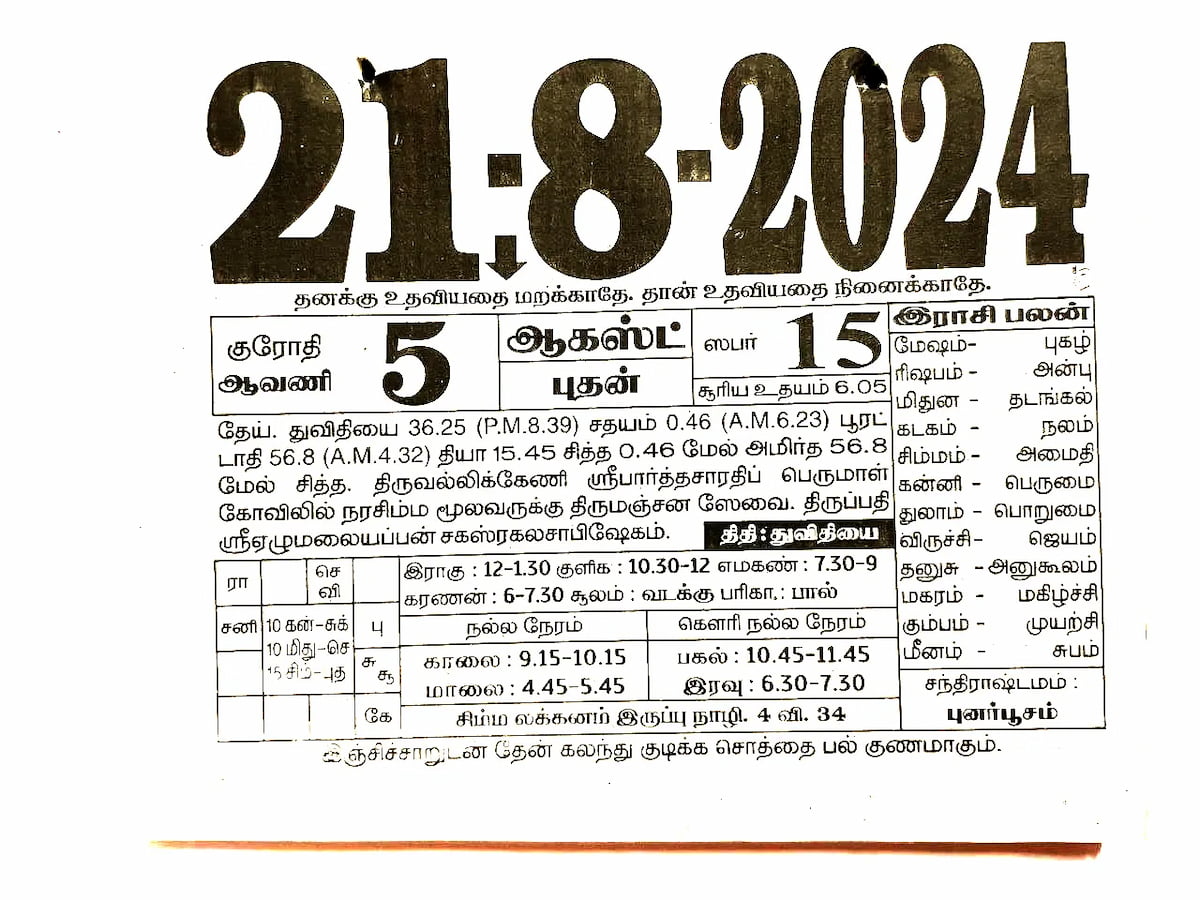 21-8-2024
தனக்கு உதவியதை மறக்காதே. தான் உதவியதை நினைக்காதே.
குரோதி
ஆவணி
5
ஆகஸ்ட்
புதன்
ஸபர் 15
சூரிய உதயம் 6.05
தேய். துவிதியை 36.25 (P.M.8.39) சதயம் 0.46 (A.M.6.23) பூரட்
டாதி 56.8 (A.M.4.32) தியா 15.45 சித்த 0.46 மேல் அமிர்த 56.8
மேல் சித்த. திருவல்லிக்கேணி ஸ்ரீபார்த்தசாரதிப் பெருமாள்
கோவிலில் நரசிம்ம மூலவருக்கு திருமஞ்சன ஸேவை. திருப்பதி
ஸ்ரீஏழுமலையப்பன் சகஸ்ரகலசாபிஷேகம்.
திதி : துவிதியை
இராசி பலன்
மேஷம்- புகழ்
ரிஷபம் - அன்பு
மிதுன - தடங்கல்
கடகம் - நலம்
சிம்மம் - அமைதி
கன்னி - பெருமை
துலாம் - பொறுமை
விருச்சி- ஜெயம்
தனுசு -அனுகூலம்
மகரம் - மகிழ்ச்சி
கும்பம் - முயற்சி
மீனம் - சுபம்
சந்திராஷ்டமம் :
புனர்பூசம்
ரா
செ
வி
சனி
10 கன்-சுக்
10 மிது-செ
15 சிம்-புத
பு
சு
சூ
கே
இராகு : 12-1.30 குளிக : 10.30-12 எமகண் : 7.30-9
கரணன் : 6-7.30 சூலம் : வடக்கு பரிகா.: பால்
நல்ல நேரம்
காலை : 9.15-10.15
மாலை : 4.45-5.45
கௌரி நல்ல நேரம்
பகல் : 10.45-11.45
இரவு : 6.30-7.30
சிம்ம லக்கனம் இருப்பு நாழி. 4 வி. 34
இஞ்சிச்சாறுடன தேன் கலந்து குடிக்க சொத்தை பல் குணமாகும்.